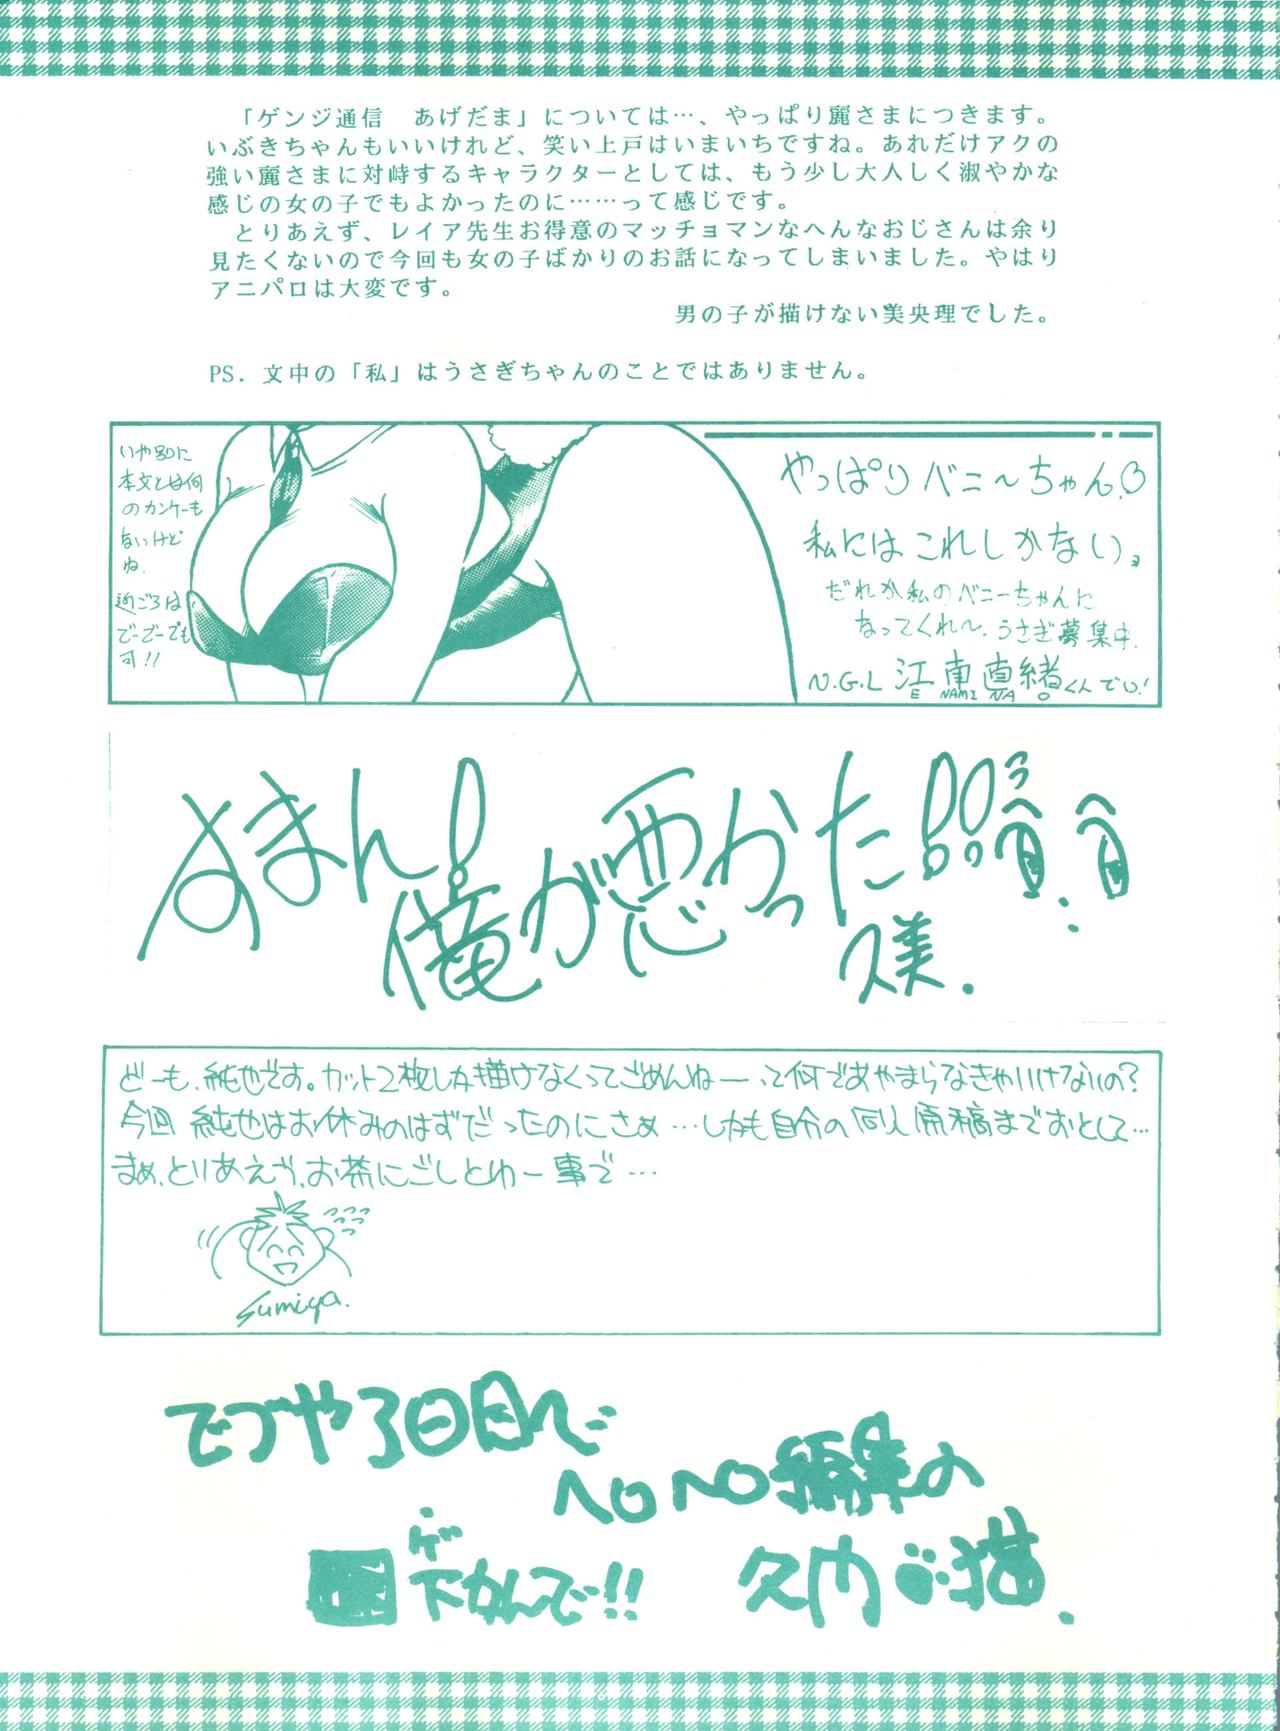 「ゲンジ通信　あげだま」については…、やっぱり麗さまにつきます。
いぶきちゃんもいいけれど、笑い上戸はいまいちですね。あれだけアクの
強い麗さまに対峙するキャラクターとしては、もう少し大人しく淑やかな
感じの女の子でもよかったのに……って感じです。
とりあえず、レイア先生お得意のマッチョマンなへんなおじさんは余り
見たくないので今回も女の子ばかりのお話になってしまいました。やはり
アニパロは大変です。
男の子が描けない美央理でした。
PS．文中の「私」はうさぎちゃんのことではありません。
いや別に
本文とは何
のカンケーも
ないけど
ね.
近ごろは
でーでーでも
可!!
やっぱりベニ～ちゃん♡
私にはこれしかない。
だれか私のベニーちゃんに
なってくれ～.うさぎ募集中.
N.G.L 江南直緒くんでい!
E NAMI NA O
すまん!
俺が悪かった!!
久美.
どーも.純也です。カット2枚しか描けなくってごめんねー…って何であやまらなきゃいけないの?
今回 純也はお休みのはずだったのにさぁ…しかも自分の同人原稿までおとして…
まぁ.とりあえず.お茶にごしとゆー事で…
Sumiya.
てつや3日目で
ヘロヘロ編集の
ゲ
下かんで!!
久内 猫.